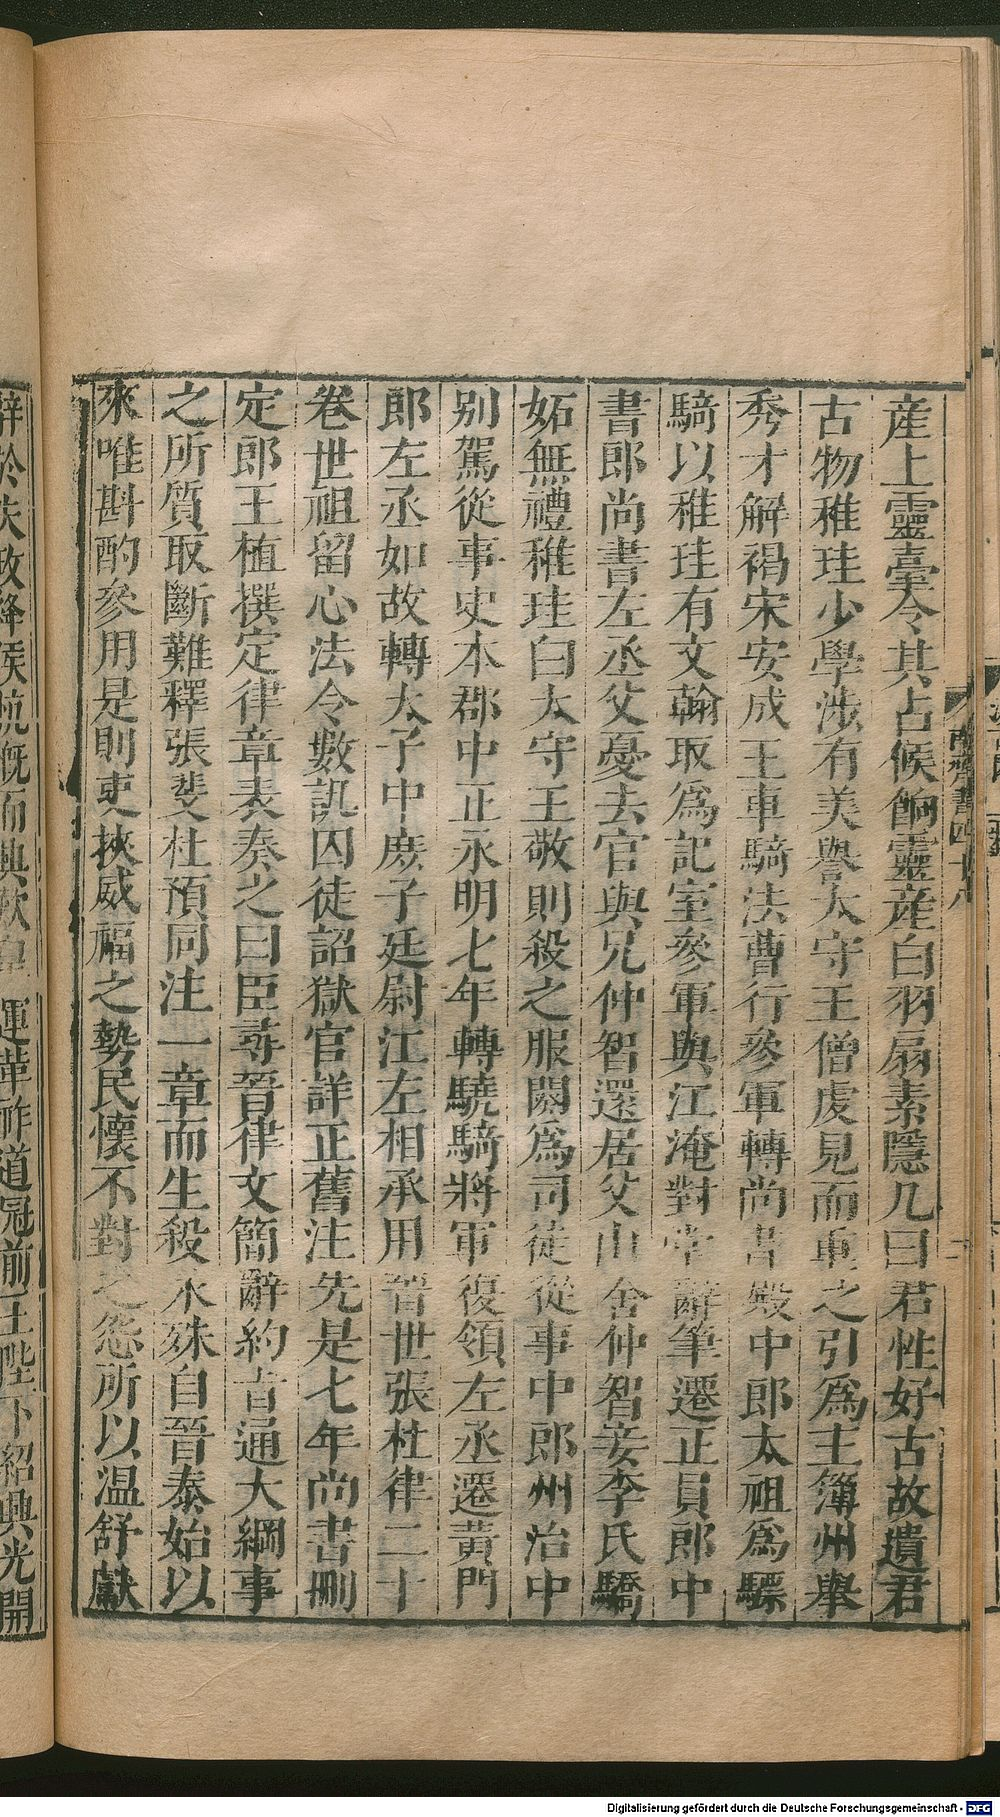 産上靈臺令其占候餉靈産白羽扇素隱几曰君性好古故遺君
古物稚珪少學涉有美譽太守王僧虔見而重之引爲主簿州舉
秀才解褐宋安成王車騎法曹行參軍轉尚書殿中郎太祖爲驃
騎以稚珪有文翰取爲記室參軍與江淹對掌辭筆遷正員郎中
書郎尚書左丞父憂去官與兄仲智還居父山舍仲智妾李氏驕
妬無禮稚珪白太守王敬則殺之服闋爲司徒從事中郎州治中
别駕從事史本郡中正永明七年轉驍騎將軍復領左丞遷黄門
郎左丞如故轉太子中庶子廷尉江左相承用晉世張杜律二十
卷世祖留心法令數訊囚徒詔獄官詳正舊注先是七年尚書刪
定郎王植撰定律章表奏之曰臣尋晉律文簡辭約旨通大綱事
之所質取斷難釋張斐杜預同注一章而生殺永殊自晉泰始以
來唯斟酌參用是則吏挾威福之勢民懷不對之怨所以温舒獻
南齊書四十八
二
運革祚道冠前王陛下紹興光開
Digitalisierung gefördert durch die Deutsche Forschungsgemeinschaft - DFG